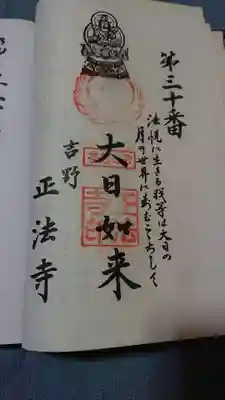 第三十番
法悦に生きる我等は大日の
月の世界にあむこゝちして
大日如来
吉野
正法寺